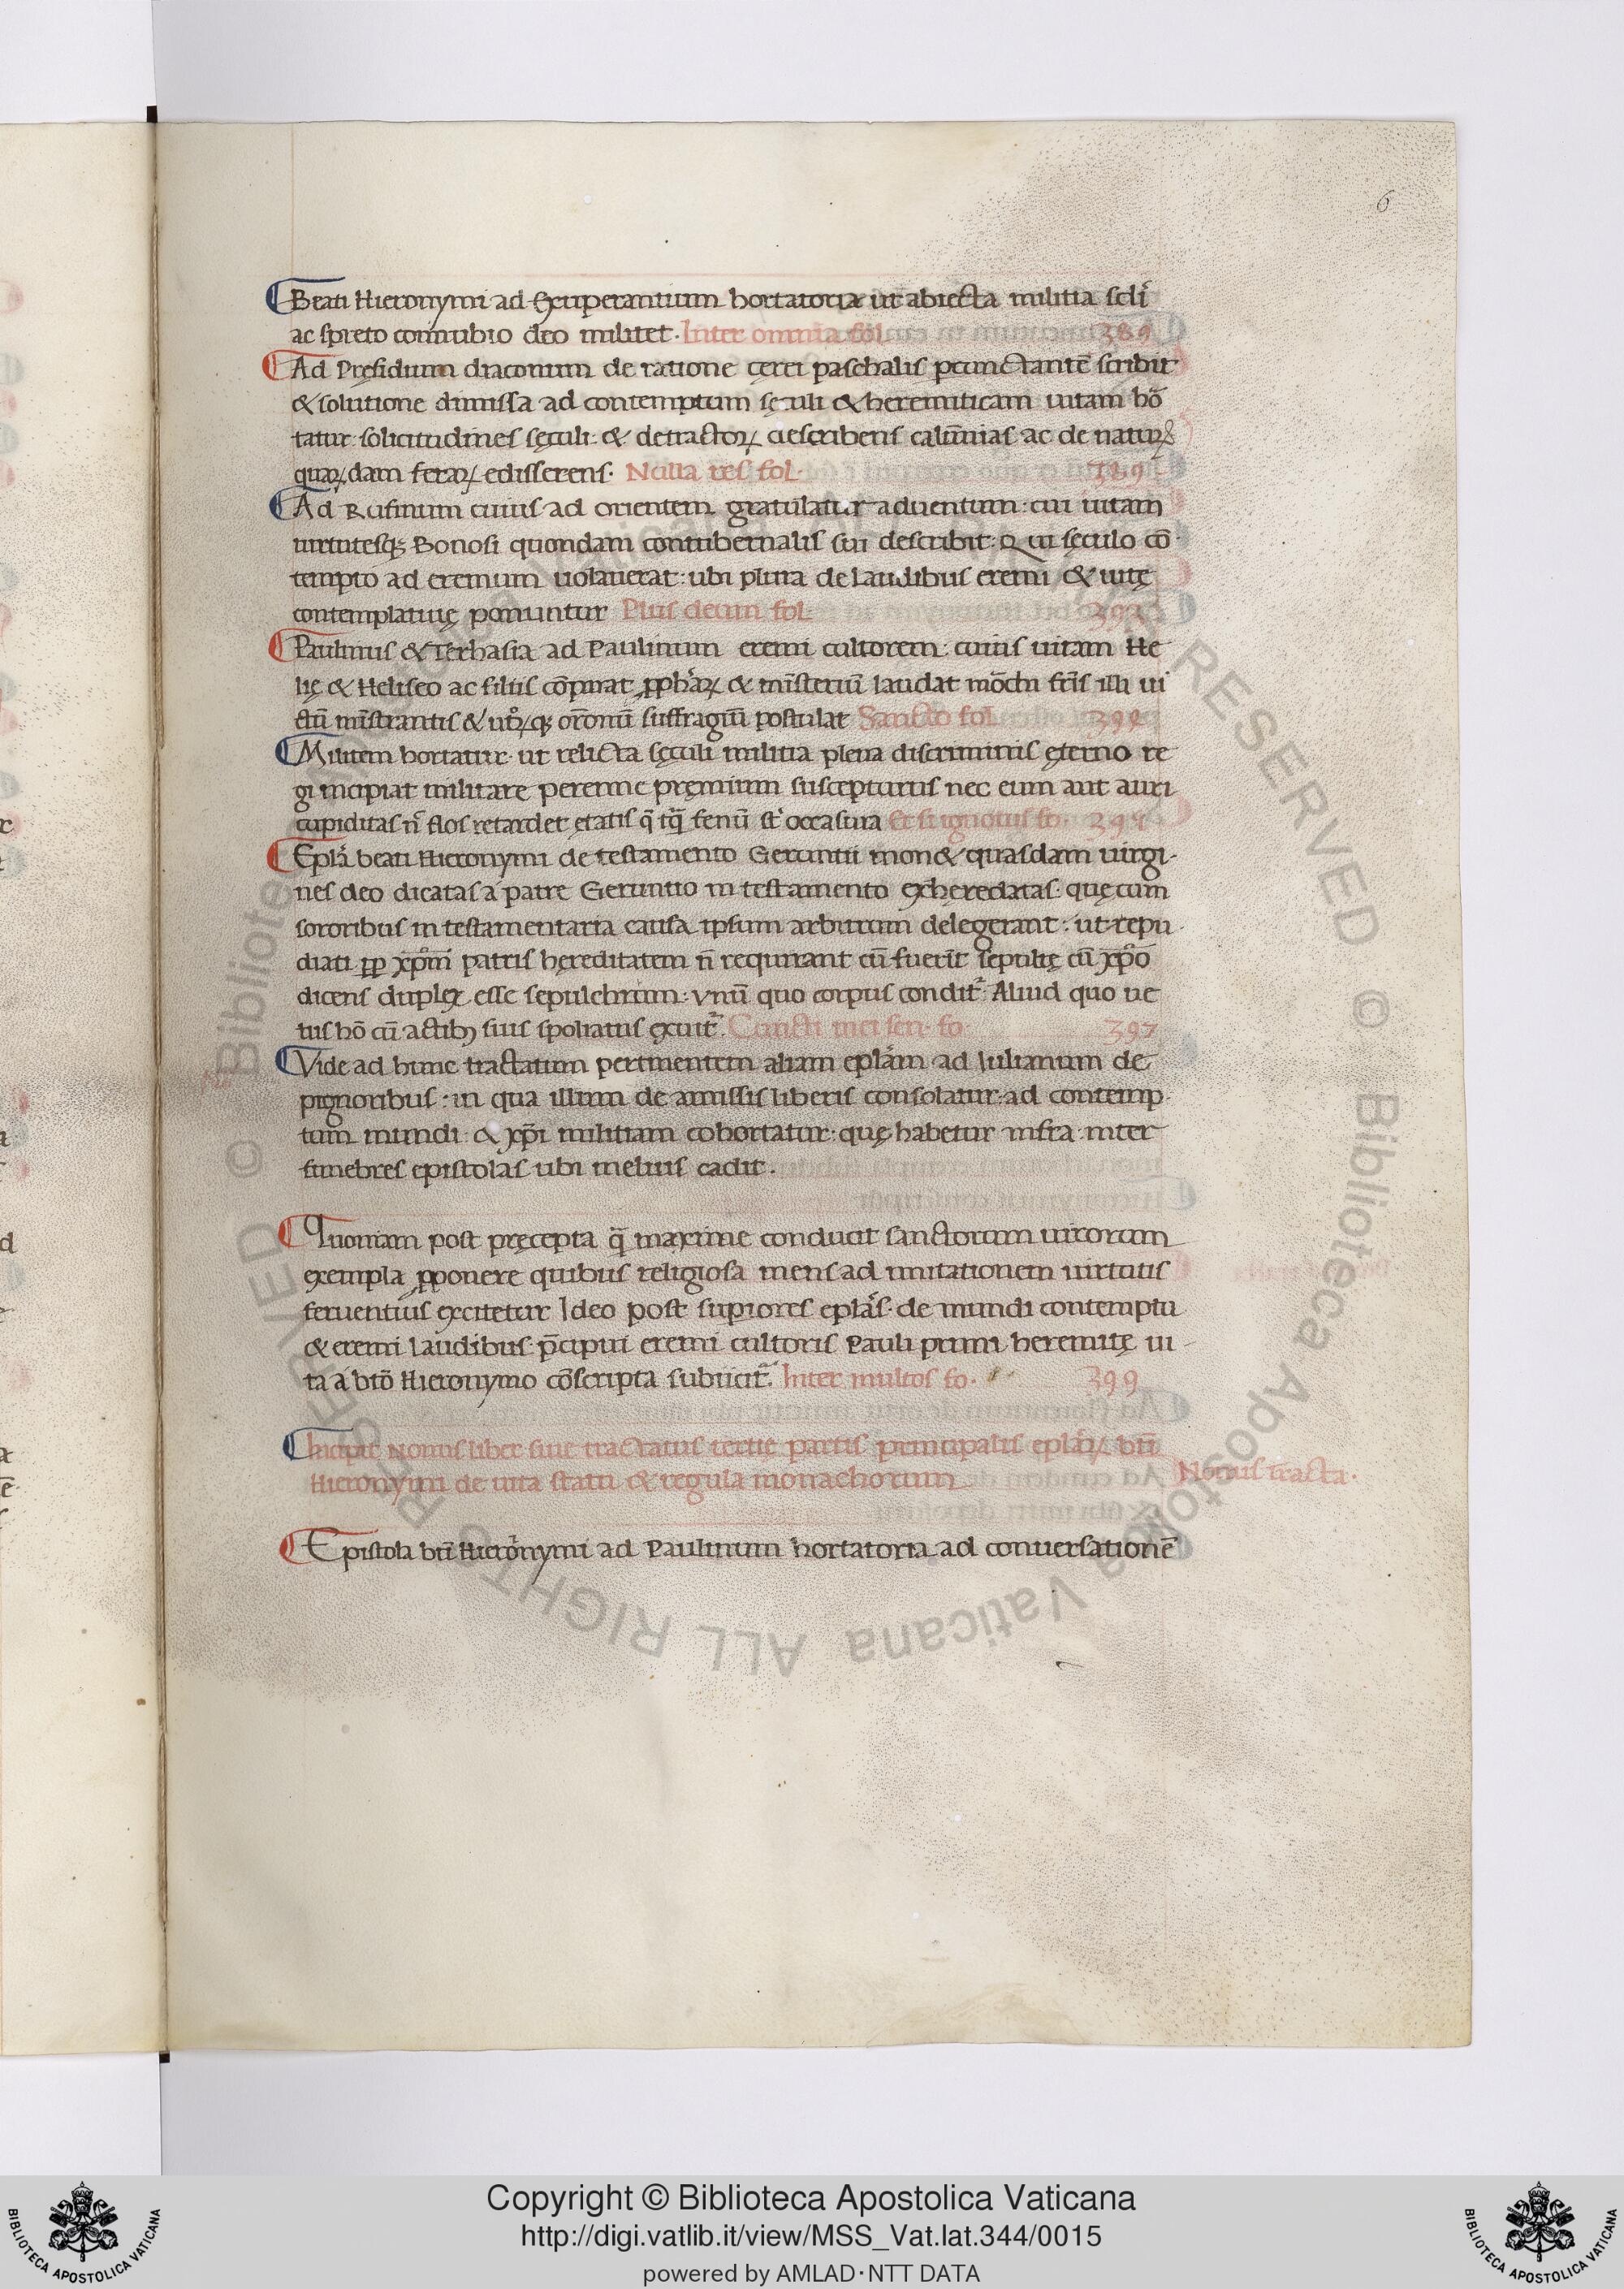 6
Beati Hieronymi ad Exuperantium hortatoria ut abiecta militia scl̄i
ac spreto connubio deo militet. Inter omnia fol. 389
Ad Pręsidium diaconum de ratione cerei paschalis pcunctantē scribit
& solutione dimissa ad contemptum sęculi & heremiticam uitam hō
tatur: solicitudines sęculi: & detractoꝝ describens calūnias ac de natur
quaꝝdam feraꝝ edisserens. Nulla res fol. 389
Ad Rufinum cuius ad orientem gratulatur aduentum: cui uitam
uirtutesq; Bonosi quondam contubernalis sui describit: Qui sęculo cō
tempto ad eremum uolauerat: ubi plura de laudibus eremi & uitę
contemplatiuę ponuntur Plus deum fol. 392
Paulinus & Terhasia ad Paulinum eremi cultorem: cuius uitam He
lię & Heliseo ac filiis cōpirat ꝓph̄aꝝ & mīsteriū laudat mōchi fr̄is illi ui
ctū mīstrantis & utr̄oꝝq; or̄onū suffragiū postulat Sancto fol. 394
Militem hortatur ut relicta sęculi militia plena discriminis ęterno re
gi incipiat militare perenne pręmium suscepturus nec eum aut auri
cupiditas n̄ flos retardet ętatis q̄ tq̄ fenū st̄ occasura Et si ignotus fo. 395
Epl̄a beati Hieronymi de testamento Geruntii mon& quasdam uirgi-
nes deo dicatas a patre Geruntio in testamento exheredatas quęcum
sororibus in testamentaria causa ipsum arbitrum delegerant: ut repu
diati ꝓp xp̄m patris hęreditatem n̄ requirant cū fuerīt sepultę cū xp̄o
dicens duplex esse sepulchrum: vnū quo corpus condit̄: Aliud quo ue
tus hō cū actib; suis spoliatus exuit̄. Cuncti mei sen. fo. 397
Vide ad hunc tractatum pertinentem aliam epl̄am ad Iulianum de
pignoribus: in qua illum de amissis liberis consolatur ad contemp
tum mundi & xp̄i militiam cohortatur: quę habetur infra inter
funebres epistolas ubi melius cadit.
Quoniam post pręcepta q̄ maxime conducit sanctorum uirorum
exempla ꝓponere quibus religiosa mens ad imitationem uirtutis
feruentius excitetur Ideo post supiores epl̄as de mundi contemptu
& eremi laudibus p̄cipui eremi cultoris Pauli primi heremitę ui-
ta a btō Hieronymo cōscripta subiicit̄. Inter multos fo. 399
Incipit Nonus liber siue tractatus tertię partis principalis epl̄aꝝ bt̄i
Hieronymi de uita statu & regula monachorum
Nonus tracta.
Epistola bt̄i Hieronymi ad Paulinum hortatoria ad conuersationē
Copyright © Biblioteca Apostolica Vaticana
http://digi.vatlib.it/view/MSS_Vat.lat.344/0015
powered by AMLAD·NTT DATA
© Biblioteca Apostolica Vaticana ALL RIGHTS RESERVED
BIBLIOTECA APOSTOLICA VATICANA
BIBLIOTECA APOSTOLICA VATICANA